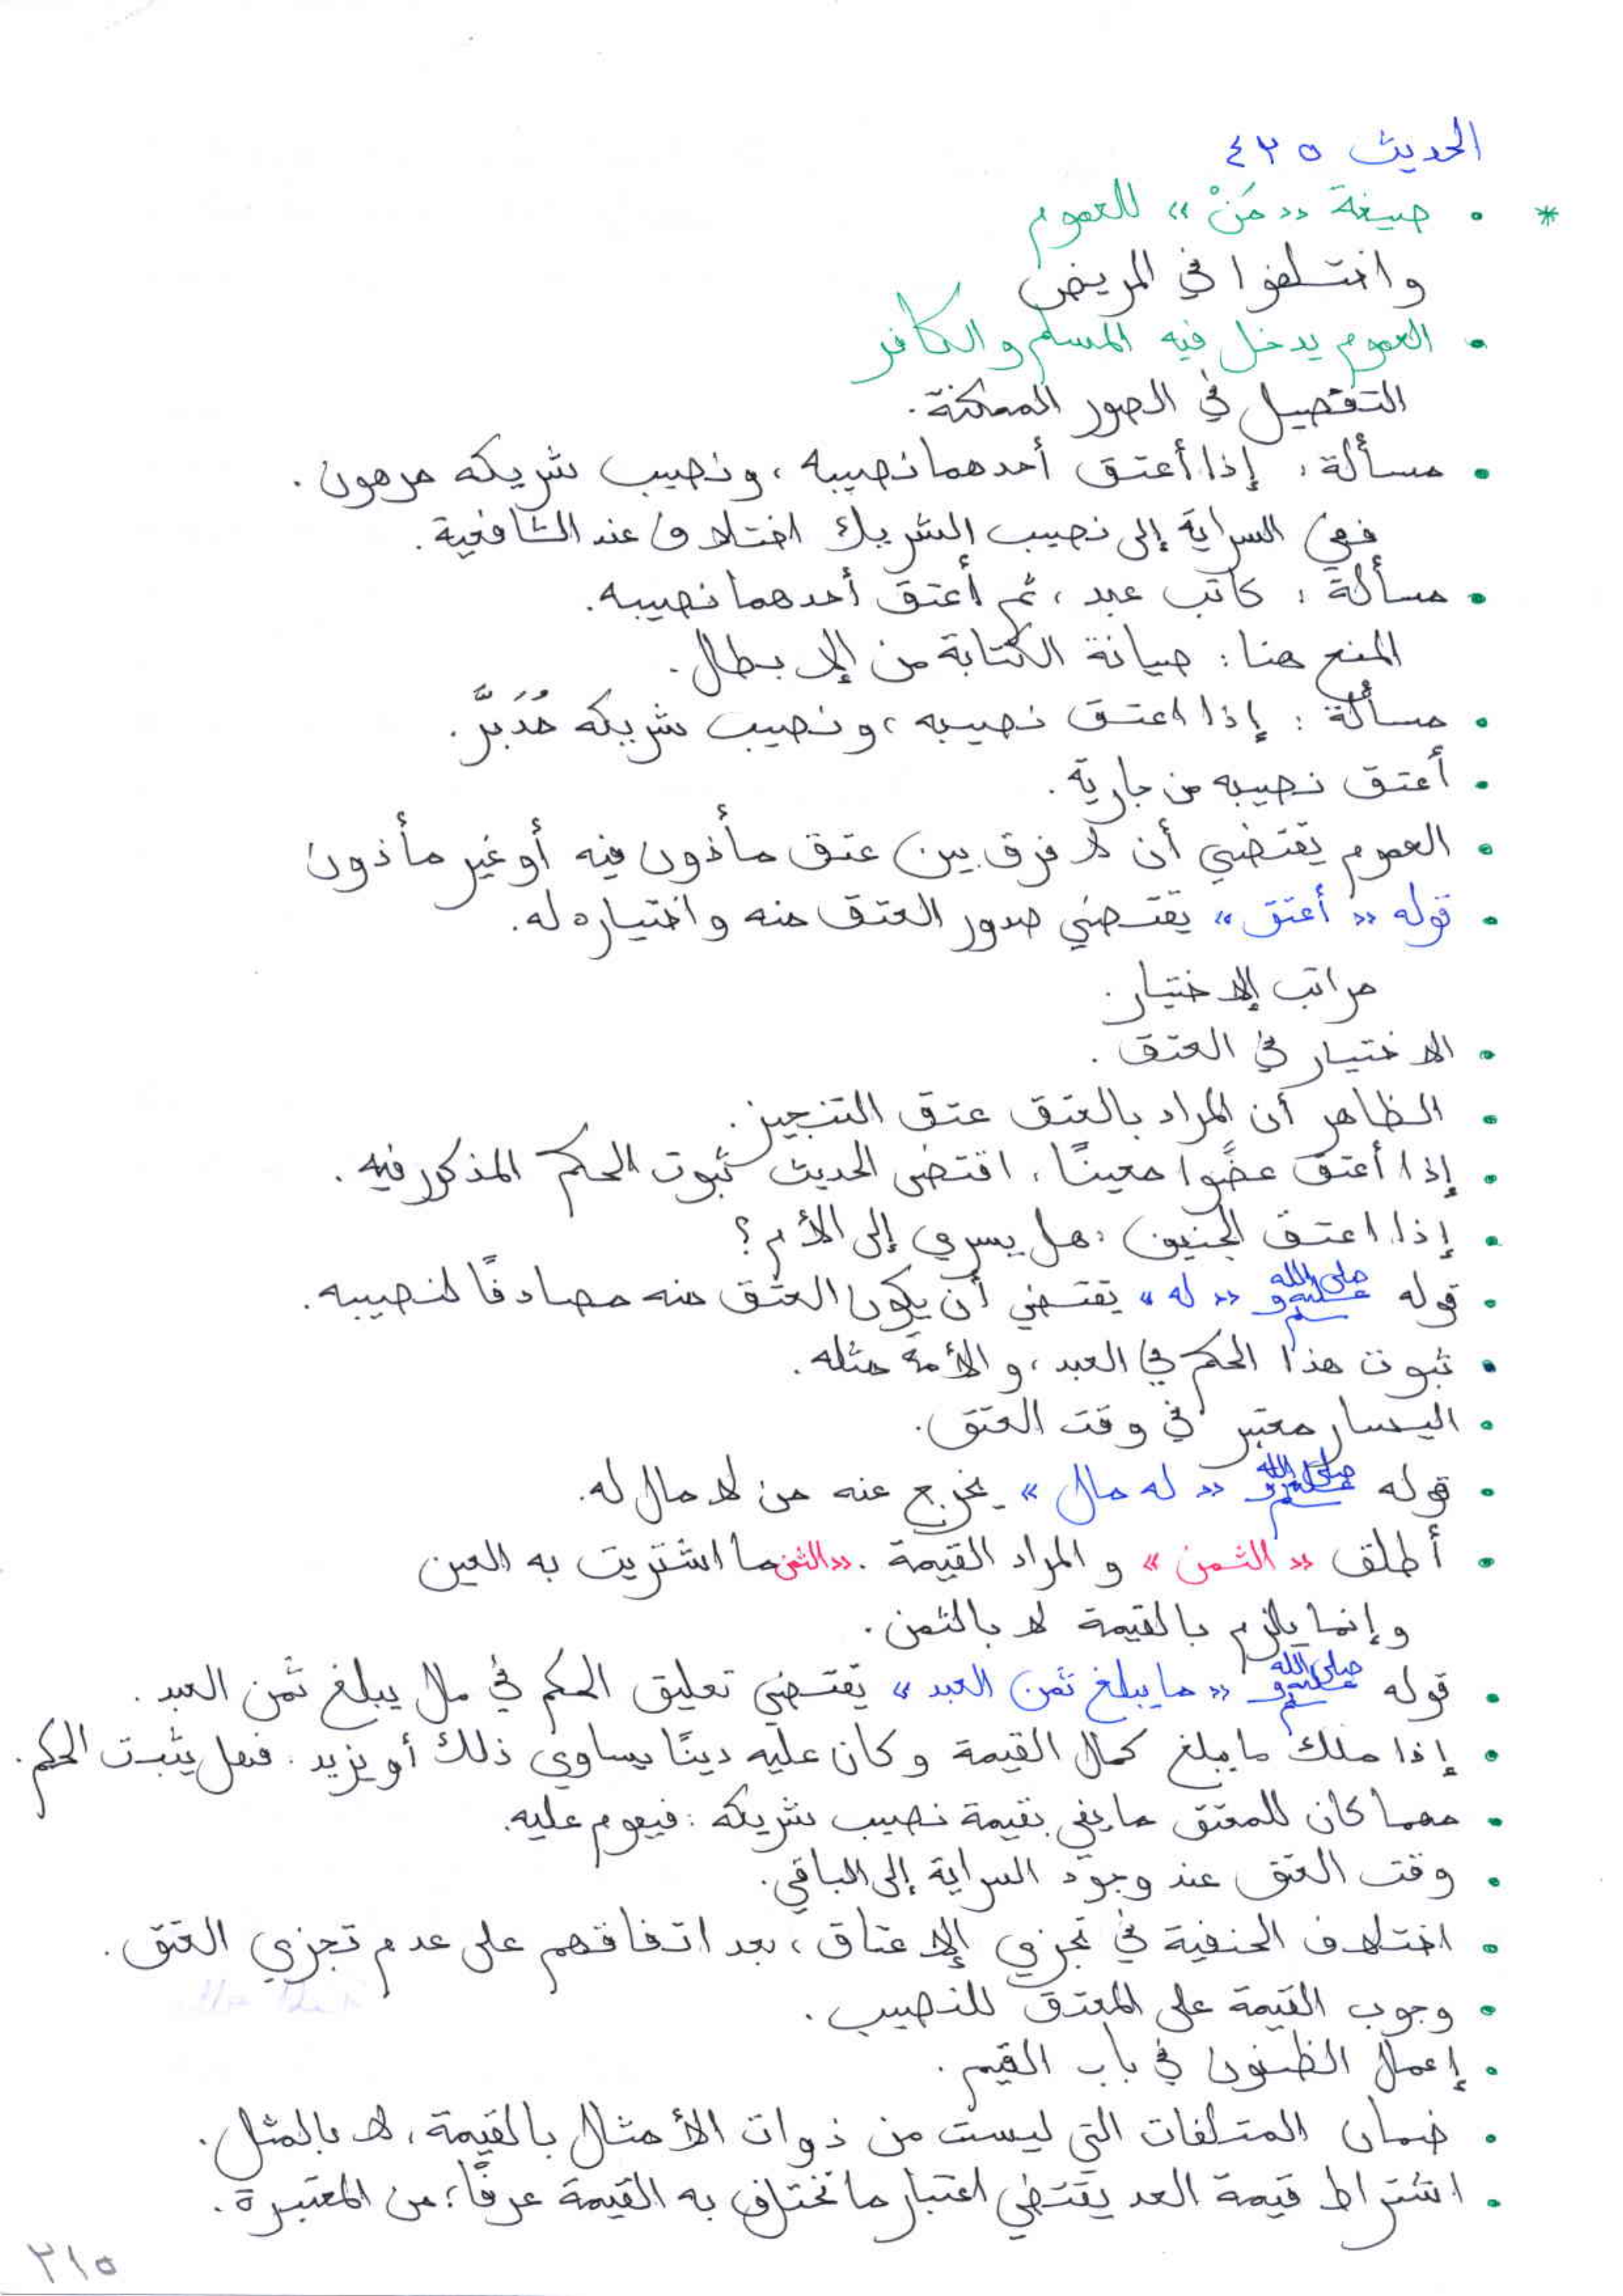 الحديث ٤٢٥
* • صيغة «مَنْ» للعموم
واختلفوا في المريض
• العموم يدخل فيه المسلم والكافر
التفصيل في الصور الممكنة.
• مسألة: إذا أعتق أحدهما نصيبه، ونصيب شريكه مرهون.
ففي السراية إلى نصيب الشريك اختلاف عند الشافعية.
• مسألة: كاتب عبد، ثم أعتق أحدهما نصيبه.
المنع هنا: صيانة الكتابة من الإبطال.
• مسألة: إذا اعتق نصيبه، ونصيب شريكه مُدَبَّر.
• أعتق نصيبه من جارية.
• العموم يقتضي أن لا فرق بين عتق مأذون فيه أو غير مأذون
• قوله «أعتق» يقتضي صدور العتق منه واختياره له.
مراتب الإختيار.
• الاختيار في العتق.
• الظاهر أن المراد بالعتق عتق التنجيز.
• إذا أعتق عضوًا معينًا، اقتضى الحديث ثبوت الحكم المذكور فيه.
• إذا اعتق الجنين، هل يسري إلى الأم؟
• قوله صلى الله عليه وسلم «له» يقتضي أن يكون العتق منه مصادفًا لنصيبه.
• ثبوت هذا الحكم في العبد، والأمة مثله.
• اليسار معتبر في وقت العتق.
• قوله صلى الله عليه وسلم «له مال» يخرج عنه من لا مال له.
• أطلق «الثمن» والمراد القيمة. «الثمن ما اشتريت به العين
وإنما يلزم بالقيمة لا بالثمن.
• قوله صلى الله عليه وسلم «ما يبلغ ثمن العبد» يقتضي تعليق الحكم في مال يبلغ ثمن العبد.
• إذا ملك ما يبلغ كمال القيمة وكان عليه دينًا يساوي ذلك أو يزيد. فهل يثبت الحكم.
• مهما كان للمعتق ما يفي بقيمة نصيب شريكه: فيقوم عليه.
• وقت العتق عند وجود السراية إلى الباقي.
• اختلاف الحنفية في تجزي الإعتاق، بعد اتفاقهم على عدم تجزي العتق.
• وجوب القيمة على المعتق للنصيب.
• إعمال الظنون في باب القيم.
• ضمان المتلفات التي ليست من ذوات الأمثال بالقيمة، لا بالمثل.
• اشتراط قيمة العد يقتضي اعتبار ما تختلف به القيمة عرفًا؛ من المعتبرة.
٢١٥